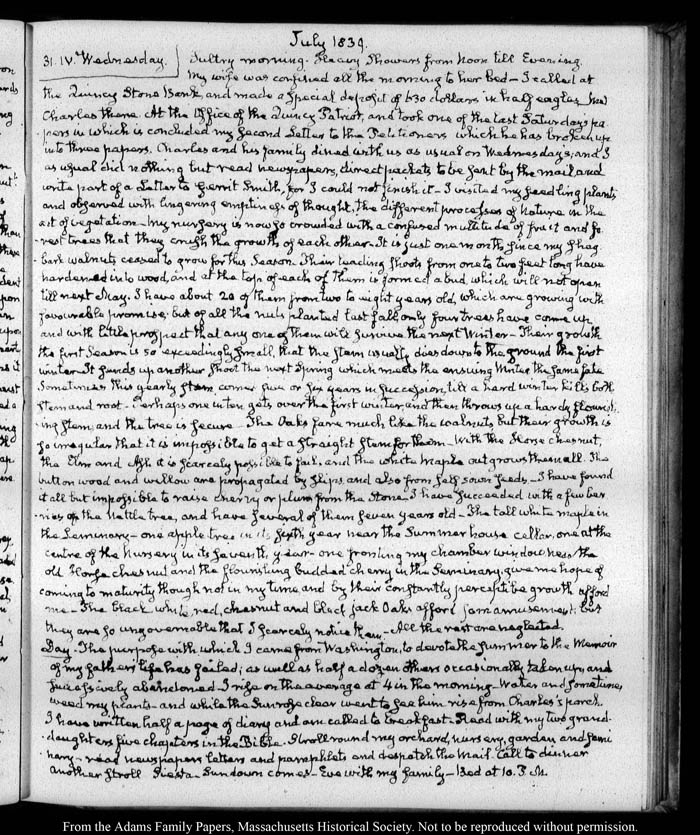 July 1839.
31. IV. Wednesday. Sultry morning. Heavy Showers from Noon till Evening.
My wife was confined all the morning to her bed — I called at
the Quincy Stone Bank, and made a special deposit of 630 dollars in half eagles.
Charles there. At the Office of the Quincy Patriot, and took one of the last Saturday's pa-
pers in which is concluded my second Letter to the Petitioners which he has broken up
into three papers. Charles and his family dined with us as usual on Wednesdays, and I
as usual did nothing but read newspapers, direct packets to be sent by the mail and
write part of a Letter to Gerrit Smith, for I could not finish it — I visited my seedling plants
and observed with lingering emptiness of thought, the different processes of Nature in the
art of vegetation — My nursery is now so crowded with a confused multitude of fruit and fo-
rest trees that they crush the growth of each other — It is just one month since my shag-
bark walnuts ceased to grow for this Season. Their leading shoots from one to two feet long have
hardened into wood, and at the top of each of them is formed a bud, which will not open
till next May. I have about 20 of them from two to eight years old, which are growing with
favourable promise; but of all the nuts planted last fall, only four trees have come up
and with little prospect that any one of them will survive the next Winter — Their growth
the first Season is so exceedingly small, that the stem usually dies down to the ground the first
winter. It sends up another shoot the next Spring which meets the ensuing Winter the same fate
Sometimes this yearly stem comes five or six years in succession, till a hard winter kills both
stem and root — Perhaps one in ten gets over the first winter, and then throws up a hardy flourish-
ing stem, and the tree is secure — The Oaks fare much like the walnuts but their growth is
so irregular that it is impossible to get a straight stem for them — With the Horse chesnut,
the Elm and Ash it is scarcely possible to fail, and the white Maple outgrows them all. The
button wood and willow are propagated by slips, and also from self sown seeds — I have found
it all but impossible to raise cherry or plum from the Stone — I have succeeded with a few ber-
ries of the Nettle tree, and have several of them seven years old — The tall white maple in
the Seminary — one apple tree in its sixth year near the Summer house cellar, one at the
centre of the Nursery in its seventh year — one fronting my chamber windows the
old Horse chesnut and the flourishing budded cherry in the Seminary, give me hope of
coming to maturity though not in my time and by their constantly perceptible growth afford
me — The black white red, chesnut and black jack Oaks afford some amusement; but
they are so ungovernable that I scarcely notice them — All the rest are neglected.
Day. The purpose with which I came from Washington, to devote the Summer to the Memoir
of my father's life has failed; as well as half a dozen others occasionally taken up, and
successively abandoned. I rise on the average at 4 in the morning — Water and sometimes
weed my plants — and while the Sun rose clear went to see him rise from Charles's porch.
I have written half a page of diary and am called to breakfast — Read with my two grand-
daughters five chapters in the Bible. Stroll round my orchard, nursery, garden and Semi-
nary — read newspapers letters and pamphlets and despatch the Mail. Call to dinner
another stroll Siesta — Sundown comes — Eve with my family — Bed at 10. P.M.
From the Adams Family Papers, Massachusetts Historical Society. Not to be reproduced without permission.